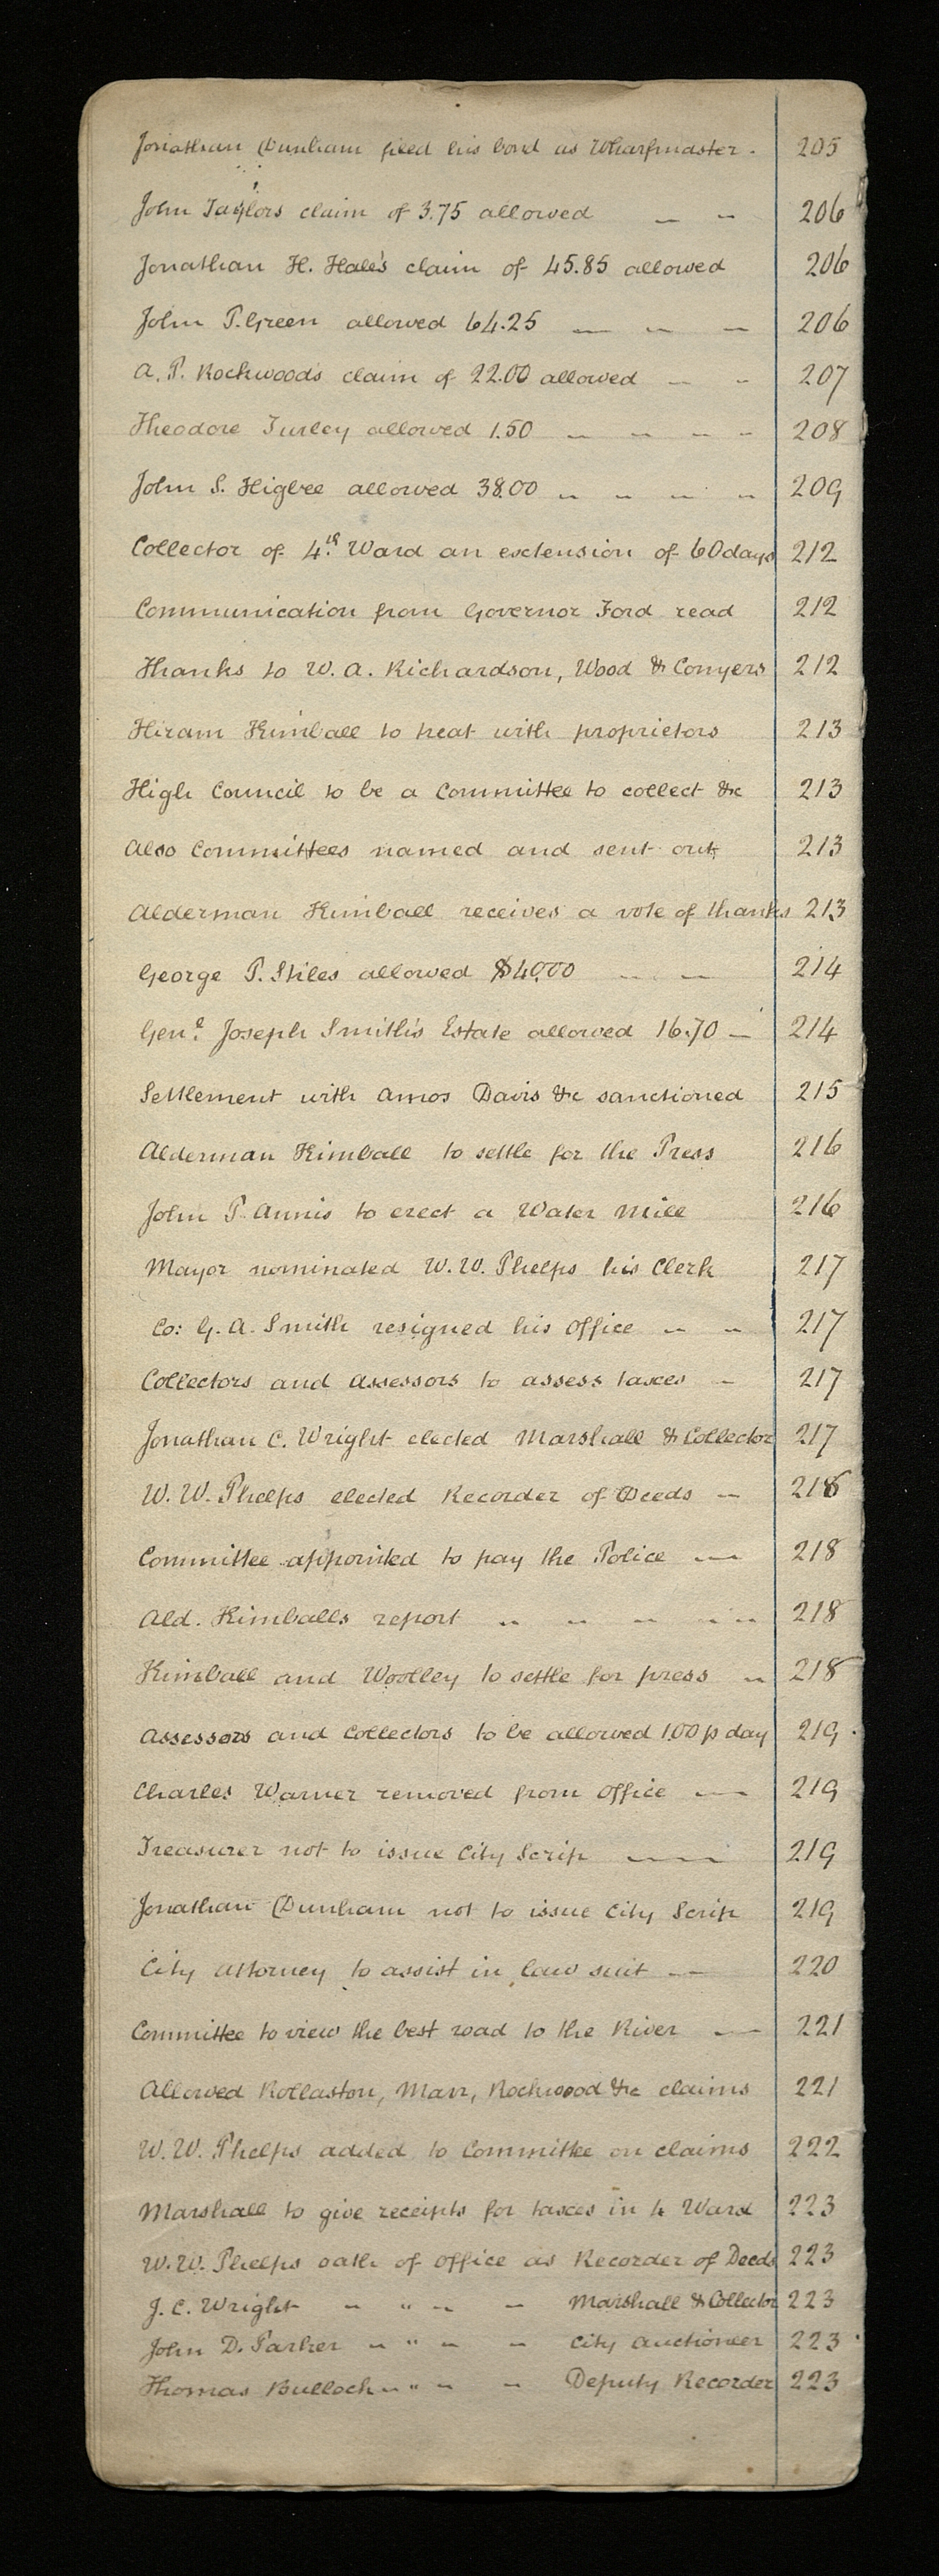 Jonathan Dunham filed his bond as Wharfmaster. 205
John Taylors claim of 3.75 allowed — — 206
Jonathan H. Hale's claim of 45.85 allowed 206
John P. Green allowed 64.25 — — — 206
A. P. Rockwoods claim of 22.00 allowed — — 207
Theodore Turley allowed 1.50 — — — — 208
John S. Higbee allowed 38.00 — — — — 209
Collector of 4th Ward an extension of 60 days 212
Communication from Governor Ford read 212
Thanks to W. A. Richardson, Wood & Conyers 212
Hiram Kimball to treat with proprietors 213
High Council to be a Committee to collect &c 213
Also Committees named and sent out 213
Alderman Kimball receives a vote of thanks 213
George P. Stiles allowed $40.00 — — 214
Genl. Joseph Smith's Estate allowed 16.70 — 214
Settlement with Amos Davis &c sanctioned 215
Alderman Kimball to settle for the Press 216
John P. Annis to erect a Water Mill 216
Mayor nominated W. W. Phelps his Clerk 217
Co: G. A. Smith resigned his office — — 217
Collectors and Assessors to assess taxes — 217
Jonathan C. Wright elected Marshall & Collector 217
W. W. Phelps elected Recorder of Deeds — 218
Committee appointed to pay the Police — 218
Ald. Kimballs report — — — — — 218
Kimball and Woolley to settle for press — 218
Assessors and Collectors to be allowed 1.00 p day 219
Charles Warner removed from Office — 219
Treasurer not to issue City Scrip — 219
Jonathan Dunham not to issue City Scrip 219
City Attorney to assist in law suit — 220
Committee to view the best road to the River — 221
Allowed Rollaston, Marr, Rockwood &c claims 221
W. W. Phelps added to Committee on claims 222
Marshall to give receipts for taxes in 4 Ward 223
W. W. Phelps oath of office as Recorder of Deeds 223
J. C. Wright — " — — Marshall & Collector 223
John D. Parker — " — — City Auctioneer 223
Thomas Bullock — " — — Deputy Recorder 223